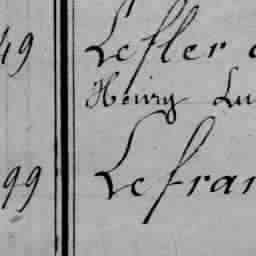 49 Lefler
Henry Lu
99 Lefran